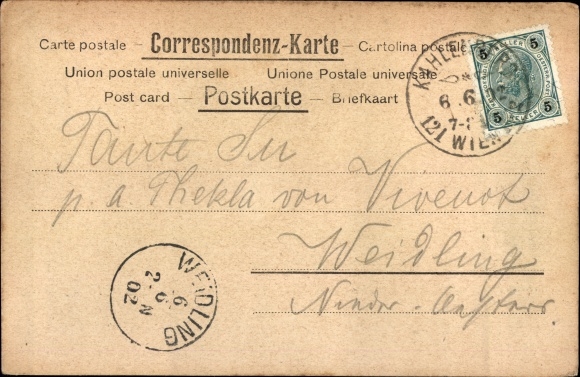 Carte postale – Correspondenz-Karte – Cartolina postale
Union postale universelle Unione Postale universale
Post card – Postkarte – Briefkaart
5 HELLER 5
5 5
KAHLENBERG
6 6
7-8
121 WIEN
Tante Su
p. a. Thekla von Vivenot
Weidling
Nieder-Oesterr
WEIDLING
6 6
2-N
02